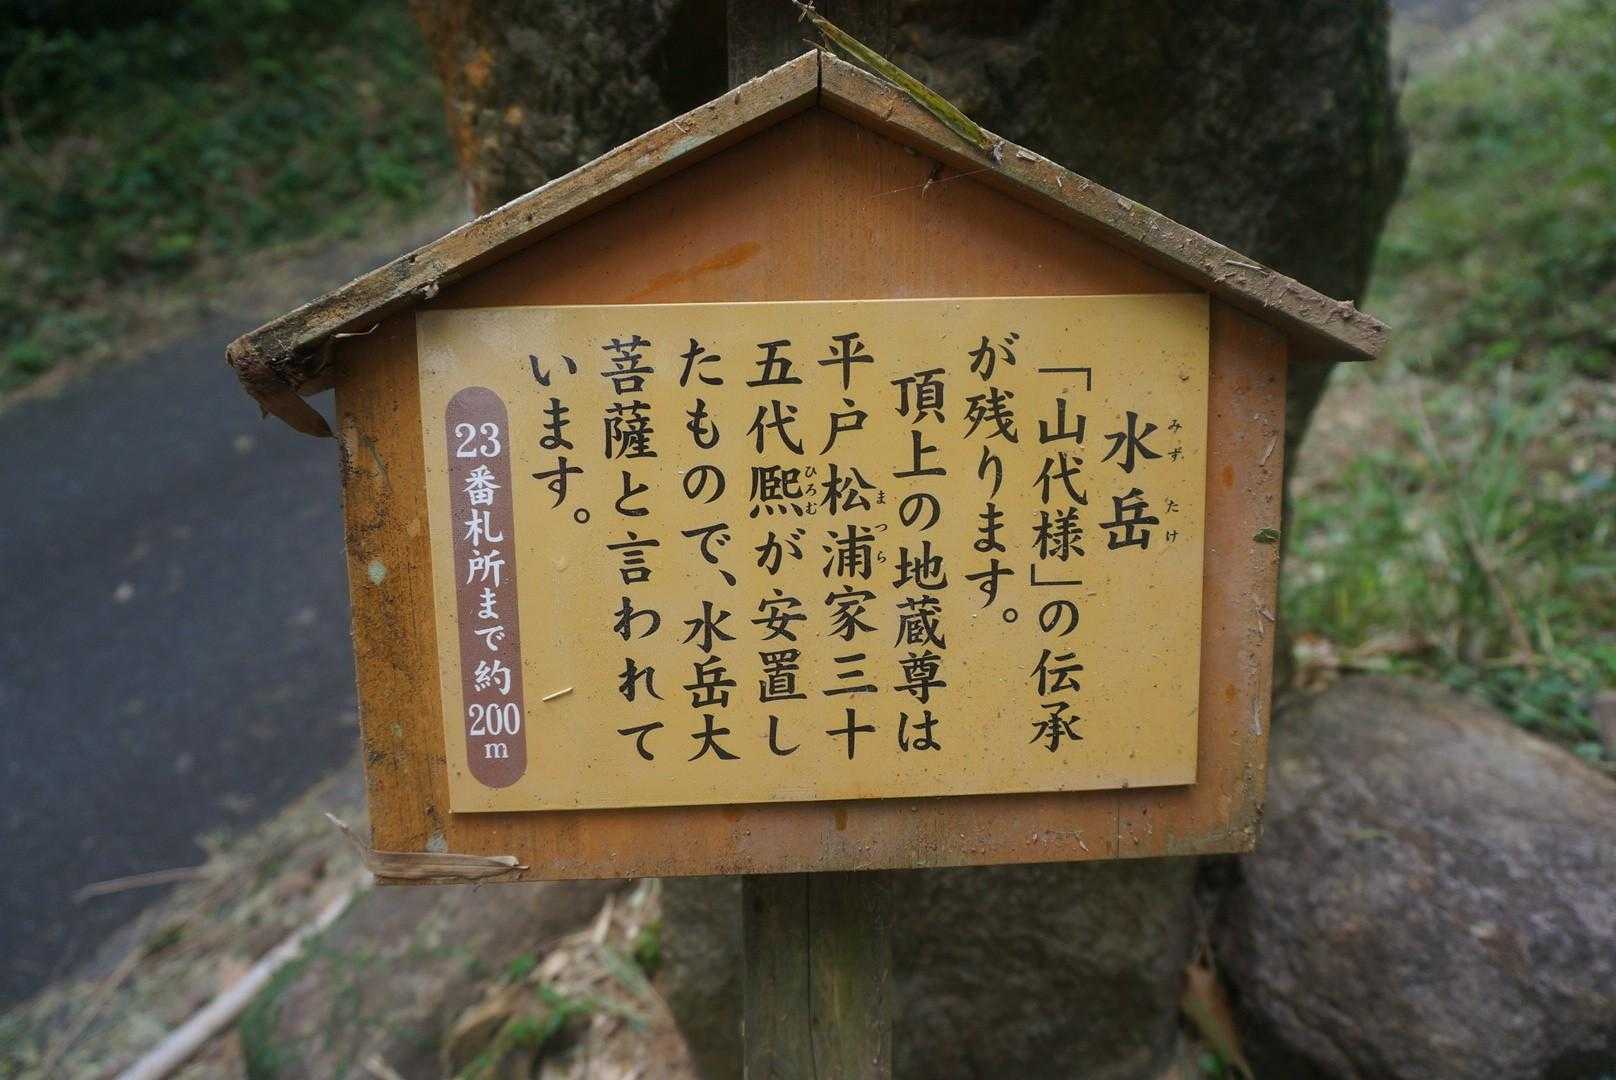 水岳
みずたけ
「山代様」の伝承
が残ります。
頂上の地蔵尊は
平戸松浦家三十
まつら
五代熈が安置し
ひろむ
たもので、水岳大
菩薩と言われて
います。
23番札所まで約200m